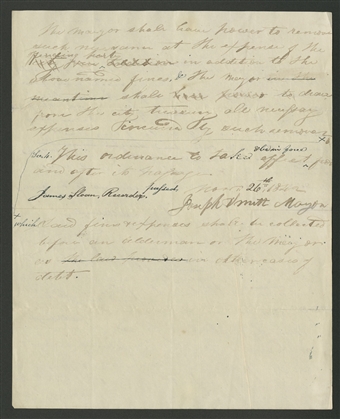 The Mayor shall have power to remove
such nuisance at the expense of the
offending party
in addition to the
above named fines. & The Mayor
shall have power to draw
from the city treasury all necessary
expenses incurred by such removal
This ordinance to take effect
& be in force
and after its passage.
passed, Nov. 26th 1842
James Sloan, Recorder.
Joseph Smith Mayor
which
and fines & expenses shall be collected
before an alderman or the Mayor
as in other cases of
debt.